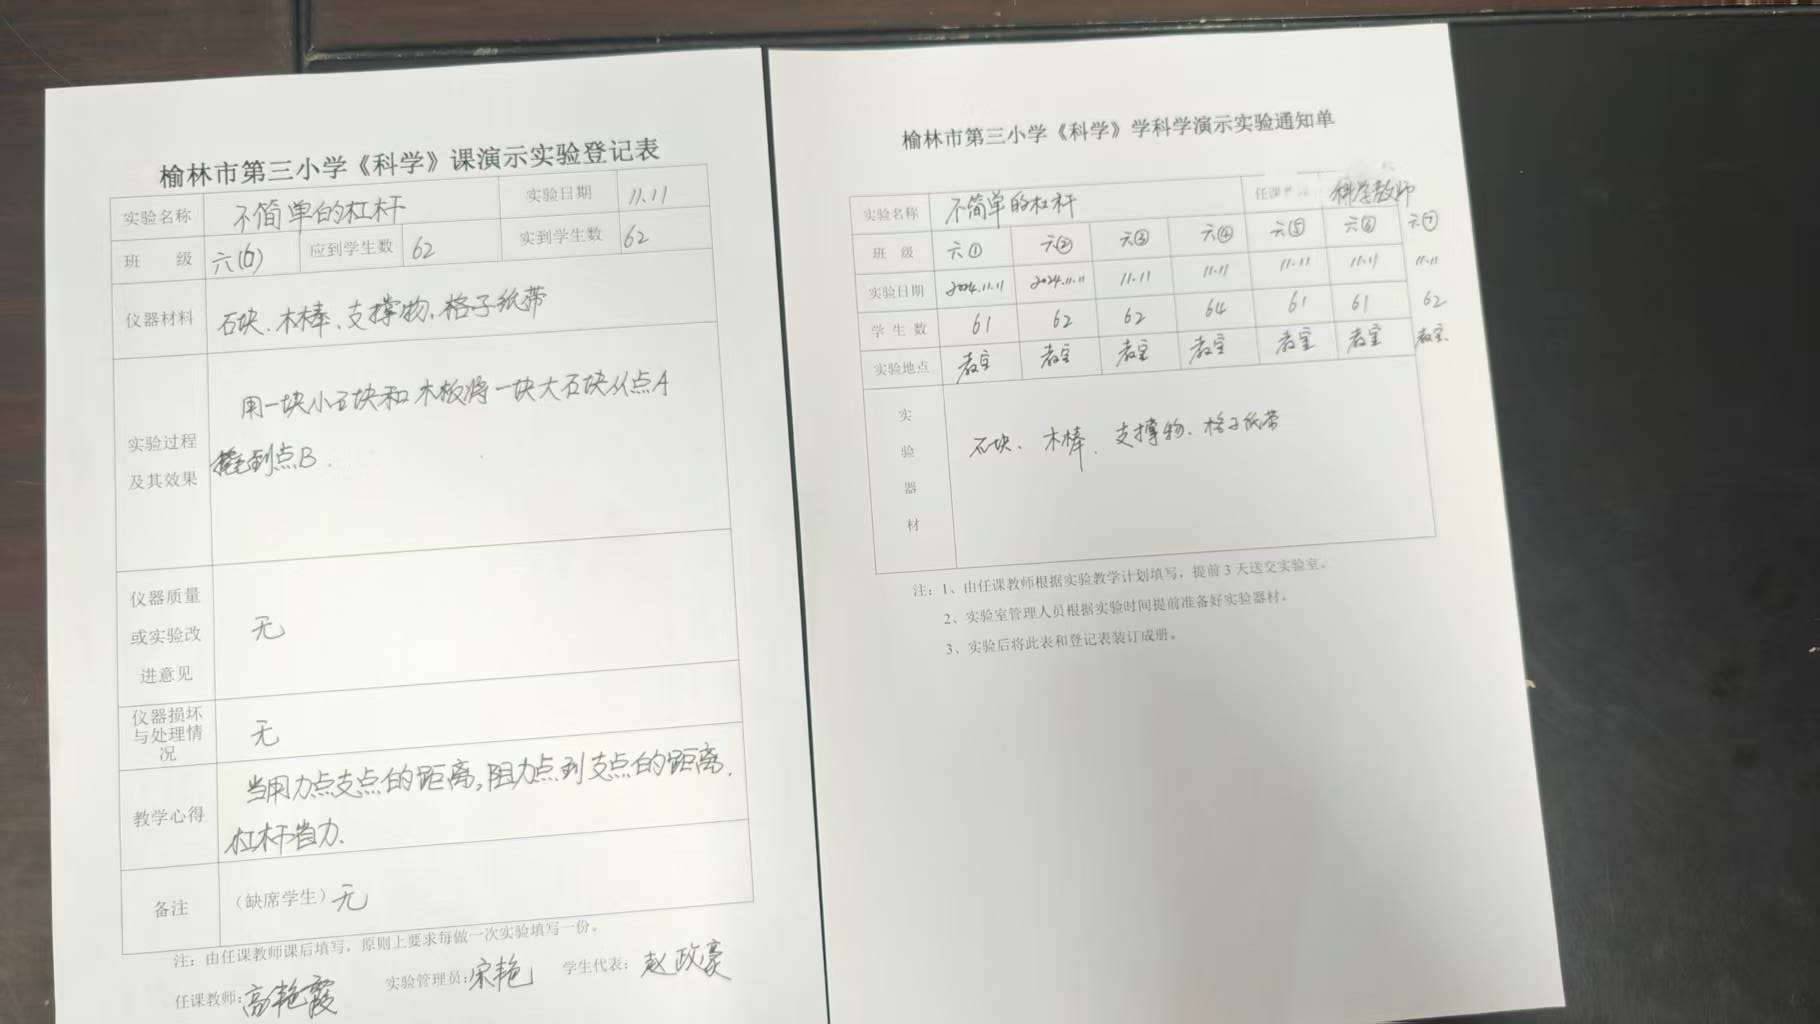 榆林市第三小学《科学》课演示实验登记表
实验名称 不简单的杠杆 实验日期 11.11
班 级 六(6) 应到学生数 62 实到学生数 62
仪器材料 石块、木棒、支撑物、格子纸带
实验过程
及其效果
用一块小石块和木板将一块大石块从点A
撬到点B.
仪器质量
或实验改
进意见
无
仪器损坏
与处理情
况
无
教学心得
当用力点支点的距离,阻力点到支点的距离.
杠杆省力.
备注 (缺席学生) 无
注:由任课教师课后填写,原则上要求每做一次实验填写一份。
任课教师:高艳霞 实验管理员:宋艳 学生代表:赵政豪
榆林市第三小学《科学》学科学演示实验通知单
实验名称 不简单的杠杆 任课 科学教师
班 级 六① 六② 六③ 六④ 六⑤ 六⑥ 六⑦
实验日期 2024.11.11 2024.11.11 11.11 11.11 11.11 11.11 11.11
学 生 数 61 62 62 64 61 61 62
实验地点 教室 教室 教室 教室 教室 教室 教室
实
验
器
材
石块、木棒、支撑物、格子纸带
注:1、由任课教师根据实验教学计划填写,提前3天送交实验室。
2、实验室管理人员根据实验时间提前准备好实验器材。
3、实验后将此表和登记表装订成册。